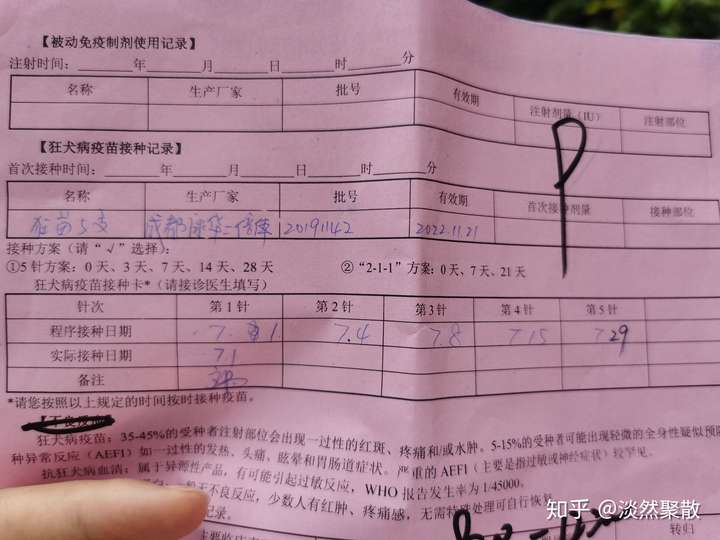 【被动免疫制剂使用记录】
注射时间：______年______月______日______时______分
名称 生产厂家 批号 有效期 注射剂量（IU） 注射部位
【狂犬病疫苗接种记录】
首次接种时间：______年______月______日______时______分
名称 生产厂家 批号 有效期 首次接种剂量 接种部位
狂苗5支 成都康华二倍体 20191142 2022.11.21
接种方案（请“√”选择）：
①5针方案：0天、3天、7天、14天、28天 ②“2-1-1”方案：0天、7天、21天
狂犬病疫苗接种卡*（请接诊医生填写）
针次 第1针 第2针 第3针 第4针 第5针
程序接种日期 7.1 7.4 7.8 7.15 7.29
实际接种日期 7.1
备注
*请您按照以上规定的时间按时接种疫苗。
狂犬病疫苗：35-45%的受种者注射部位会出现一过性的红斑、疼痛和/或水肿。5-15%的受种者可能出现轻微的全身性疑似预防
种异常反应（AEFI）如一过性的发热、头痛、眩晕和胃肠道症状。严重的AEFI（主要是指过敏或神经症状）较罕见。
抗狂犬病血清：属于异源性产品，有可能引起过敏反应，WHO报告发生率为1/45000。
无不良反应，少数人有红肿、疼痛感，无需特殊处理可自行恢复。
记录。
转归
知乎 @淡然聚散